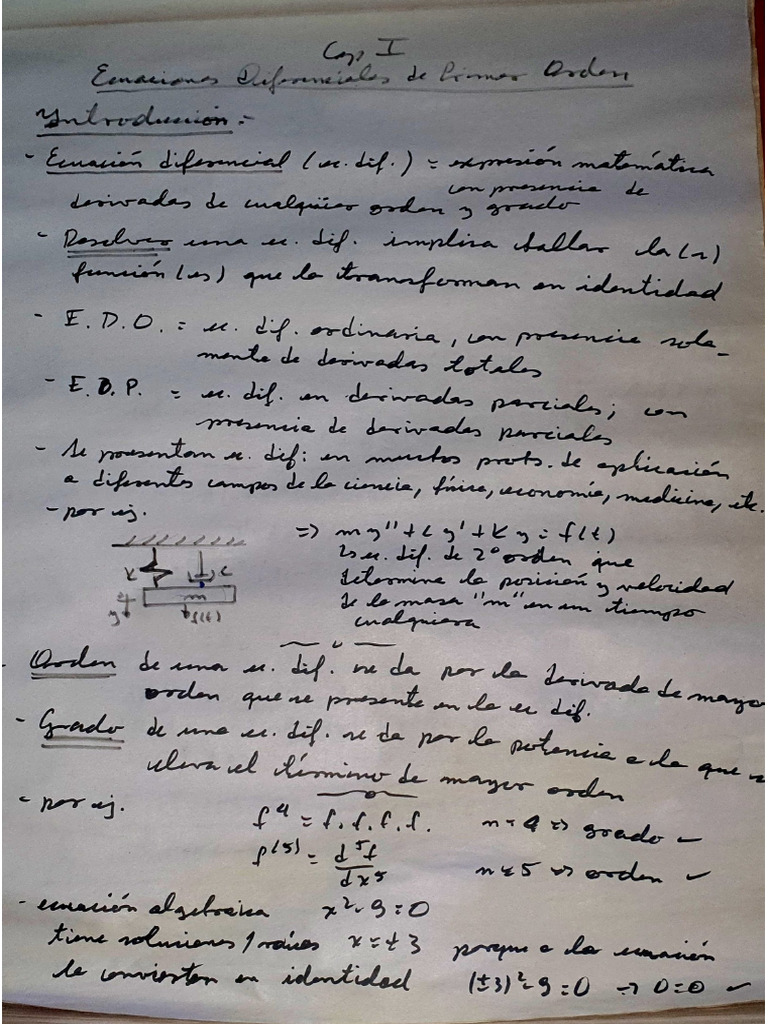 Cap I
Ecuaciones Diferenciales de Primer Orden
Introducción:-
- Ecuación diferencial (ec. dif.) = expresión matemática
con presencia de
derivadas de cualquier orden y grado
- Resolver una ec. dif. implica hallar la(s)
función(es) que la transforman en identidad
- E.D.O. = ec. dif. ordinaria, con presencia sola-
mente de derivadas totales
- E.D.P. = ec. dif. en derivadas parciales; con
presencia de derivadas parciales
- Se presentan ec. dif: en muchos probs. de aplicación
a diferentes campos de la ciencia, física, economía, medicina, etc.
- por ej.
K C
m
y f(t)
=> my'' + c y' + K y = f(t)
es ec. dif. de 2° orden que
determina la posición y velocidad
de la masa "m" en un tiempo
cualquiera
- Orden de una ec. dif. se da por la derivada de mayor
orden que se presente en la ec dif.
- Grado de una ec. dif. se da por la potencia a la que s
eleva el término de mayor orden
- por ej. f⁴ = f.f.f.f. n=4 => grado ✓
f⁽⁵⁾ = d⁵f/dx⁵ n=5 => orden ✓
- ecuación algebraica x² - 9 = 0
tiene soluciones/raíces x = ±3 porque a la ecuación
la convierten en identidad (±3)² - 9 = 0 → 0=0 ✓